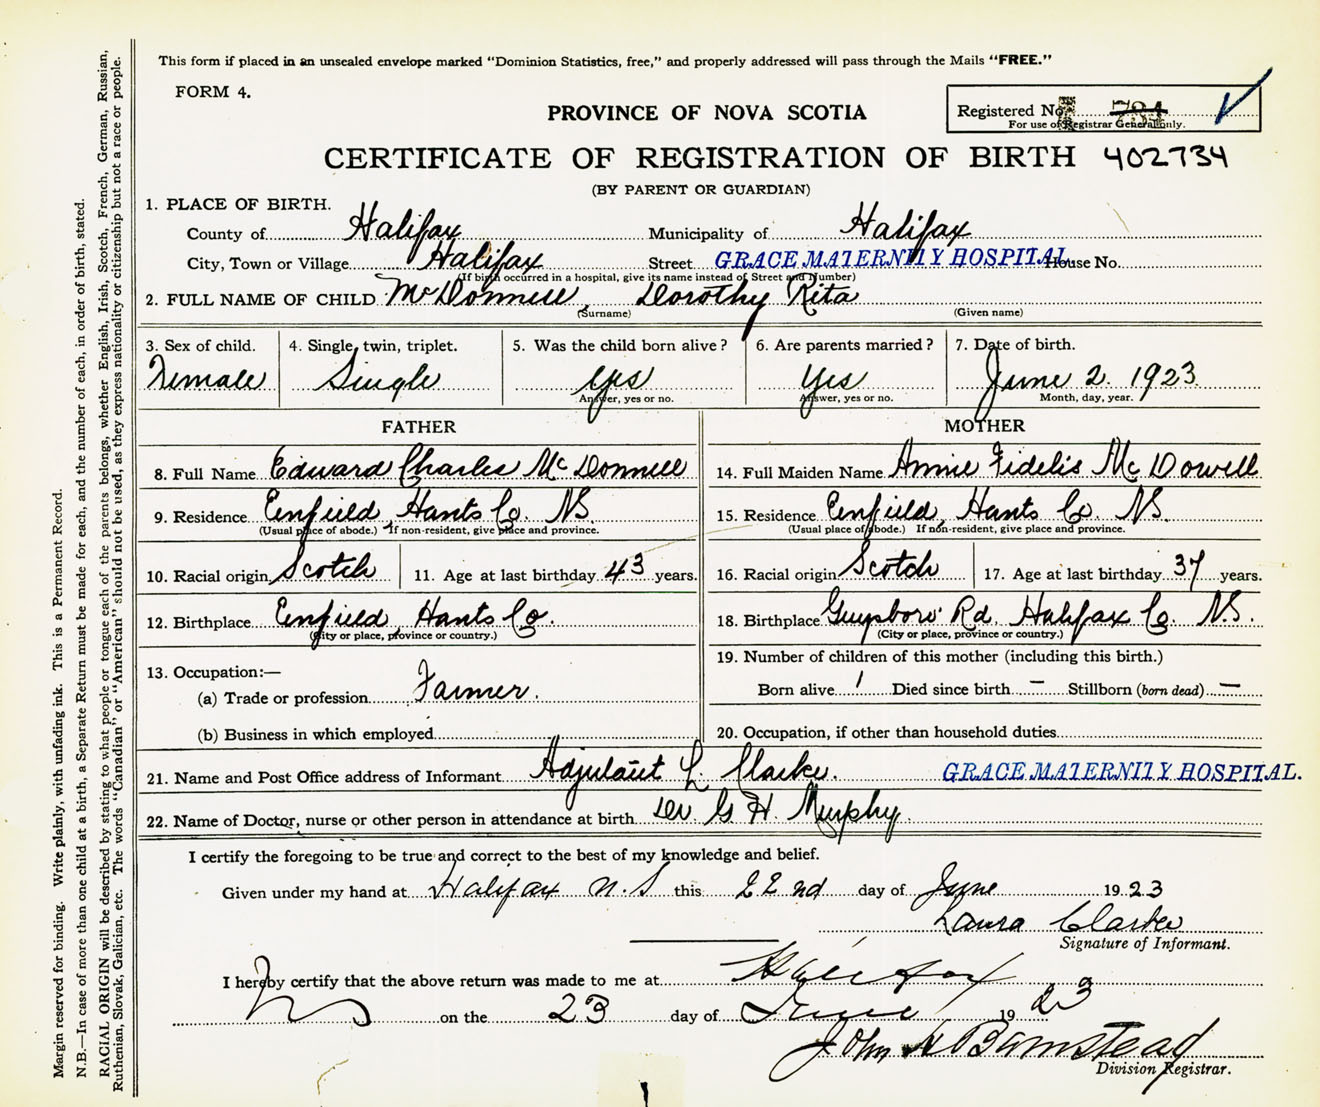 This form if placed in an unsealed envelope marked "Dominion Statistics, free," and properly addressed will pass through the Mails "FREE."
FORM 4.
PROVINCE OF NOVA SCOTIA
Registered No.
For use of Registrar General only.
CERTIFICATE OF REGISTRATION OF BIRTH 402734
(BY PARENT OR GUARDIAN)
1. PLACE OF BIRTH.
County of Halifax Municipality of Halifax
City, Town or Village Halifax Street GRACE MATERNITY HOSPITAL House No.
(If birth occurred in a hospital, give its name instead of Street and Number)
2. FULL NAME OF CHILD McDonnell, Dorothy Rita
(Surname) (Given name)
3. Sex of child. 4. Single, twin, triplet. 5. Was the child born alive? 6. Are parents married? 7. Date of birth.
Female Single Yes Yes June 2. 1923
Answer, yes or no. Answer, yes or no. Month, day, year.
FATHER MOTHER
8. Full Name Edward Charles McDonnell 14. Full Maiden Name Annie Fidelis McDowell
9. Residence Enfield Hants Co. N.S. 15. Residence Enfield, Hants Co. N.S.
(Usual place of abode.) If non-resident, give place and province. (Usual place of abode.) If non-resident, give place and province.
10. Racial origin Scotch 11. Age at last birthday 43 years. 16. Racial origin Scotch 17. Age at last birthday 37 years.
12. Birthplace Enfield, Hants Co. 18. Birthplace Guysboro' Rd. Halifax Co. N.S.
(City or place, province or country.) (City or place, province or country.)
13. Occupation:— 19. Number of children of this mother (including this birth.)
(a) Trade or profession Farmer. Born alive 1 Died since birth — Stillborn (born dead) —
(b) Business in which employed 20. Occupation, if other than household duties
21. Name and Post Office address of Informant Adjutant L. Clarke. GRACE MATERNITY HOSPITAL.
22. Name of Doctor, nurse or other person in attendance at birth Dr. G. H. Murphy.
I certify the foregoing to be true and correct to the best of my knowledge and belief.
Given under my hand at Halifax N.S this 22nd day of June 1923
Laura Clarke
Signature of Informant.
I hereby certify that the above return was made to me at Halifax
NS on the 23 day of June 1923
John H Barnstead
Division Registrar.
Margin reserved for binding. Write plainly, with unfading ink. This is a Permanent Record.
N.B.—In case of more than one child at a birth, a Separate Return must be made for each, and the number of each, in order of birth, stated.
RACIAL ORIGIN will be described by stating to what people or tongue each of the parents belongs, whether English, Irish, Scotch, French, German, Russian,
Ruthenian, Slovak, Galician, etc. The words "Canadian" or "American" should not be used, as they express nationality or citizenship but not a race or people.